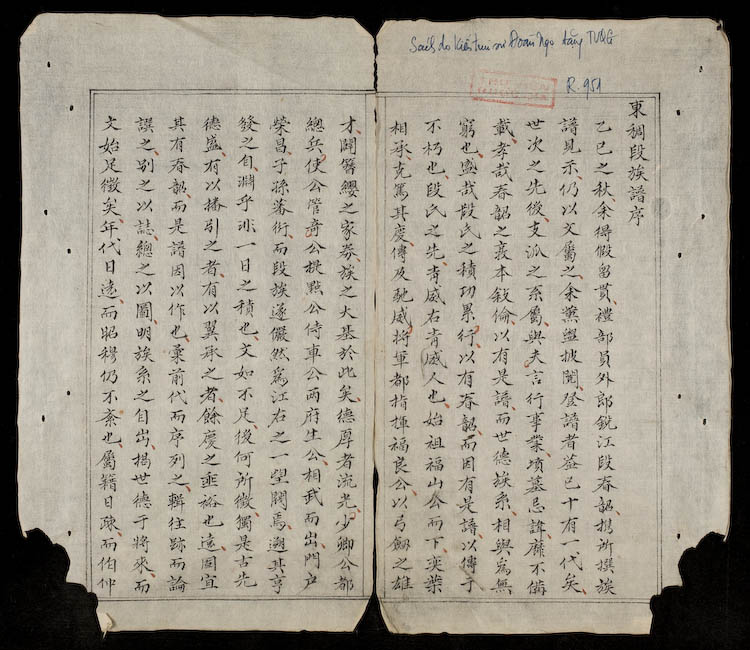 Sách do Kiến trúc sư Đoàn Ngọ tặng TVQG
R.951
東稠段族譜序
乙巳之秋余得假留貫禮部員外郎銳江段春韶携所撰族
譜見示仍以文屬之余薰盥披閱登譜者蓋已十有一代矣
世次之先後支派之系屬與夫言行事業墳墓忌諱靡不備
載孝哉春韶之衷本敍倫以有是譜而世德族系相與爲無
窮也盛哉段氏之積功累行以有春韶而因有是譜以傳于
不朽也段氏之先青威右青威人也始祖福山公而下奕葉
相承克篤其慶傳及馳威將軍都指揮福良公以弓劔之雄
才闢簪纓之家券族之大基於此矣德厚者流光少卿公都
總兵使公管奇公掞點公侍車公兩府生公相武而出門户
榮昌子孫蕃衍而段族遂儼然爲江右之一望閥焉遡其亨
發之自淵乎非一日之積也文如不足後何所徵獨是古先
德盛有以播引之者有以翼承之者餘慶之垂裕也遠固宜
其有春韶而是譜因以作也彙前代而序列之輯往跡而論
譔之别之以誌總之以圖明族系之自出揭世德于將來而
文始足徵矣年代日遠而昭穆仍不紊也屬籍日疎而伯仲